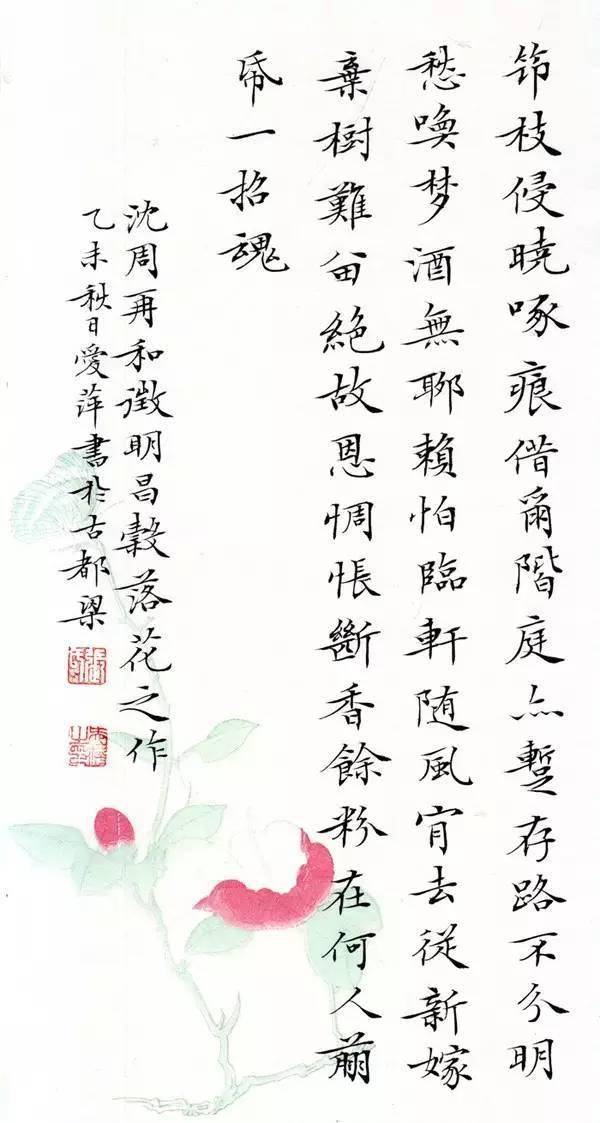 筇枝侵曉啄痕借爾階庭点暫存路不分明
愁喚梦酒無聊賴怕臨軒随風肯去從新嫁
棄樹難留絕故恩惆悵斷香餘粉在何人剪
帋一招魂
沈周再和徵明昌穀落花之作
乙未秋日愛萍書於古都梁